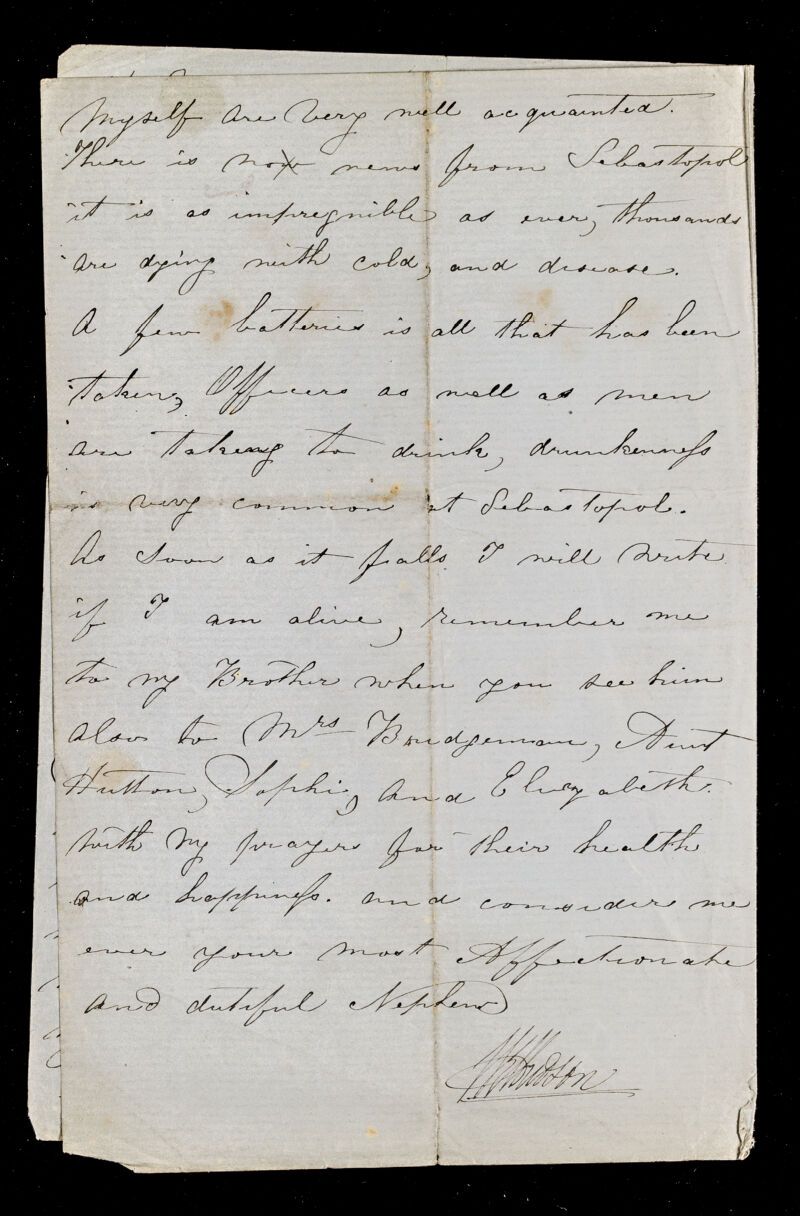 Myself are very well acquainted.
There is no news from Sebastopol
it is as impregnible as ever, thousands
are dying with cold, and disease.
A few batteries is all that has been
taken, Officers as well as men
are taking to drink, drunkenness
is very common at Sebastopol.
As soon as it falls I will write
if I am alive, remember me
to my Brother when you see him
also to Mrs Bridgeman, Aunt
Hutton, Sophi, and Elizabeth.
with my prayers for their health
and happiness. and consider me
ever your most Affectionate
and dutiful Nephew
Hudson